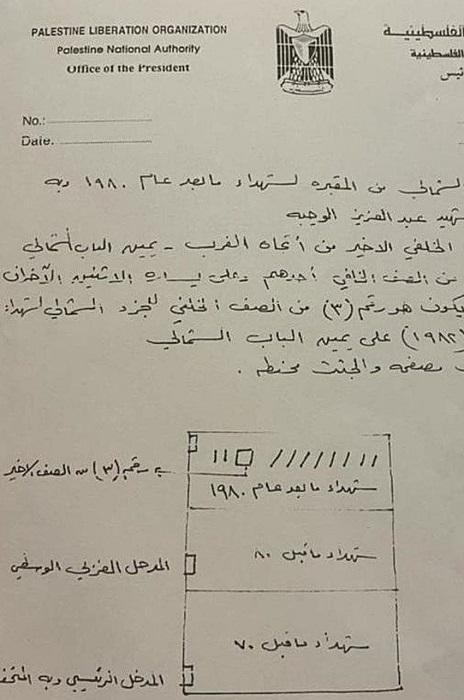 PALESTINE LIBERATION ORGANIZATION
الفلسطينية
Palestine National Authority
الفلسطينية
Office of the President
ئيس
No.:
Date.
الشمالي من المقبره لشهداء ما بعد عام ١٩٨٠ وبه
شهيد عبد العزيز الوجيه
الخلفي الاخير من أتجاه الغرب - يمين الباب الشمالي
من الصف الخلفي أحدهم وعلى يساره الاثنين الآخران
يكون هو رقم (٣) من الصف الخلفي للجزء الشمالي لشهداء
(١٩٨٢) على يمين الباب الشمالي
مصفحه والجثث محنطه .
رقم (٣) من الصف الاخير
شهداء ما بعد عام ١٩٨٠
المدخل الغربي الوسطي
شهداء ما قبل ٨٠
شهداء ما قبل ٧٠
المدخل الرئيسي وبه